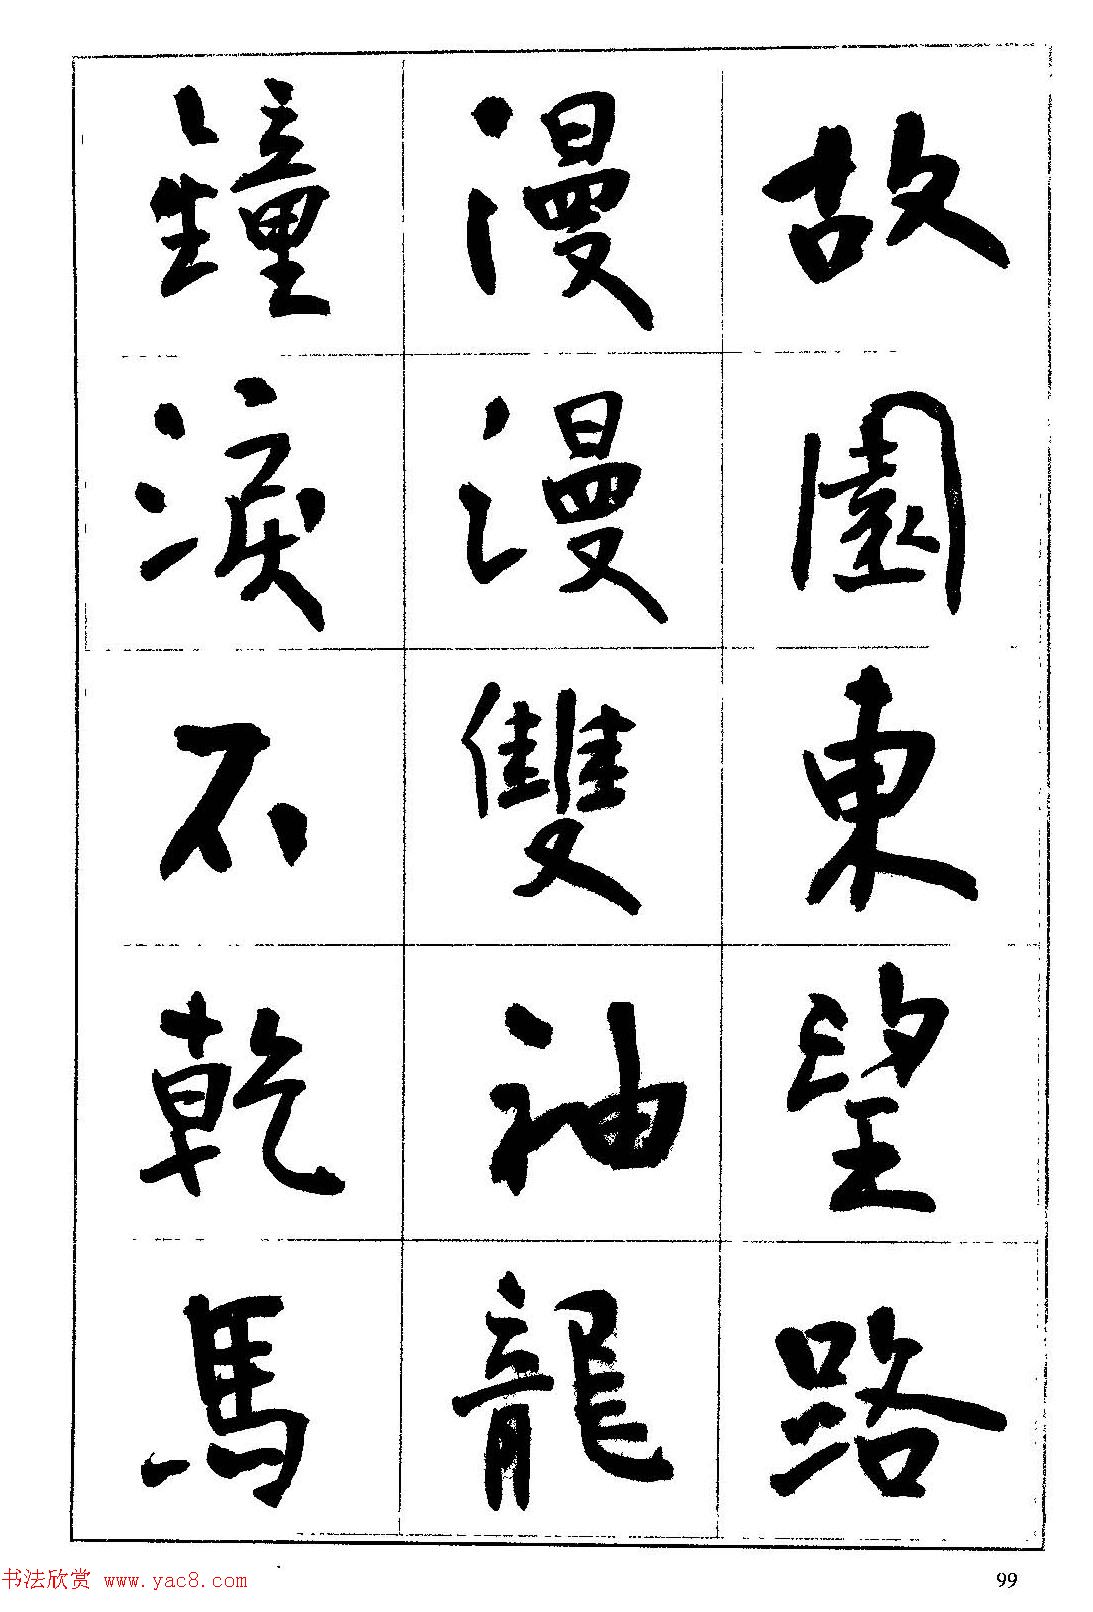 故園東望路
漫漫雙袖龍
鐘淚不乾馬
书法欣赏 www.yac8.com
99